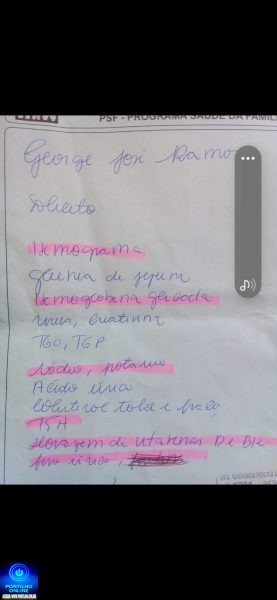 PSF - PROGRAMA SAÚDE DA FAMÍL
George José Ramos
Solicito:
Hemograma
glicemia de jejum
Hemoglobina glicada
ureia, creatinina
TGO, TGP
sódio, potássio
Ácido úrico
Colesterol total e fraçõ
TSH
dosagem de vitaminas D e B12
PORTILHO
ONLINE
ACESSE: WWW.PORTILHOONLINE